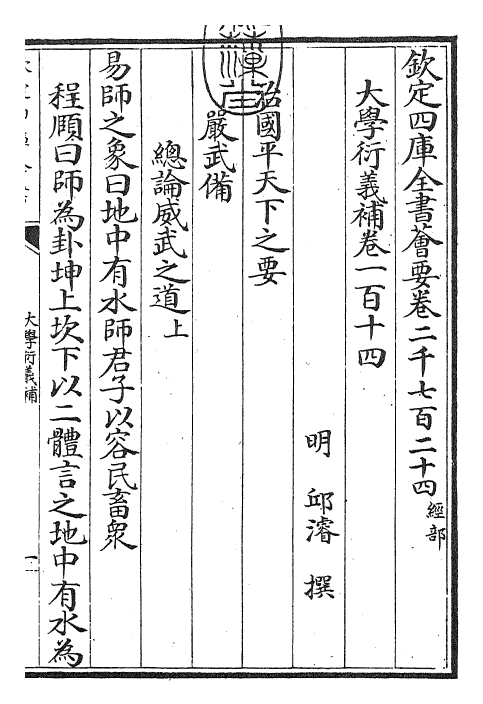 欽定四庫全書薈要卷二千七百二十四 經部
大學衍義補卷一百十四
明 邱濬 撰
治國平天下之要
嚴武備
總論威武之道上
易師之象曰地中有水師君子以容民畜衆
程頤曰師為卦坤上坎下以二體言之地中有水為
大學衍義補
一